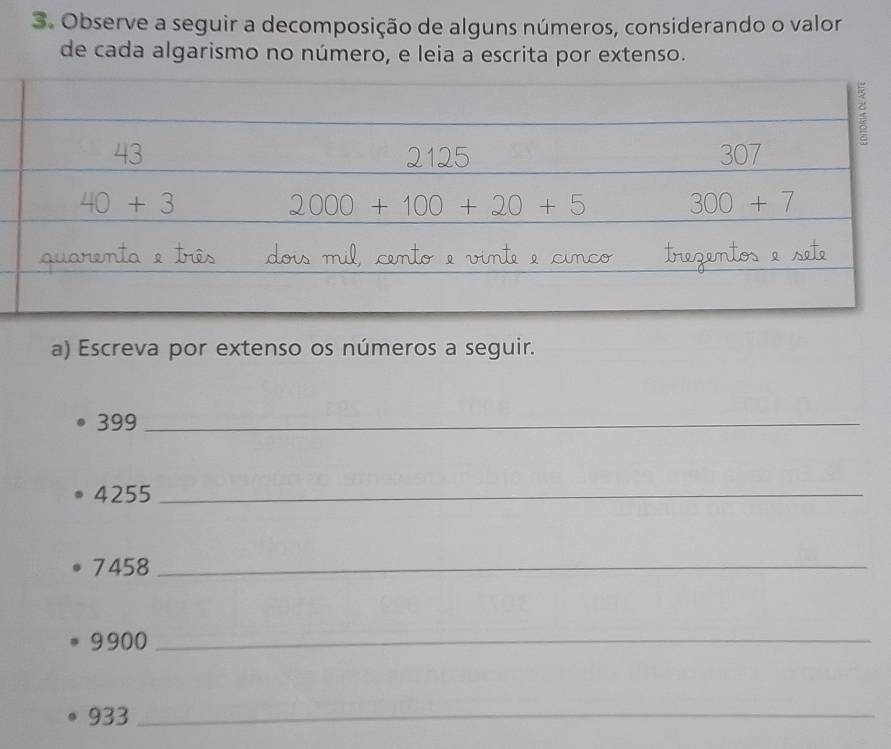 3. Observe a seguir a decomposição de alguns números, considerando o valor
de cada algarismo no número, e leia a escrita por extenso.
EDITORIA DE ARTE
43 2125 307
40 + 3 2000 + 100 + 20 + 5 300 + 7
quarenta e três dois mil, cento e vinte e cinco trezentos e sete
a) Escreva por extenso os números a seguir.
• 399
• 4255
• 7458
• 9900
• 933